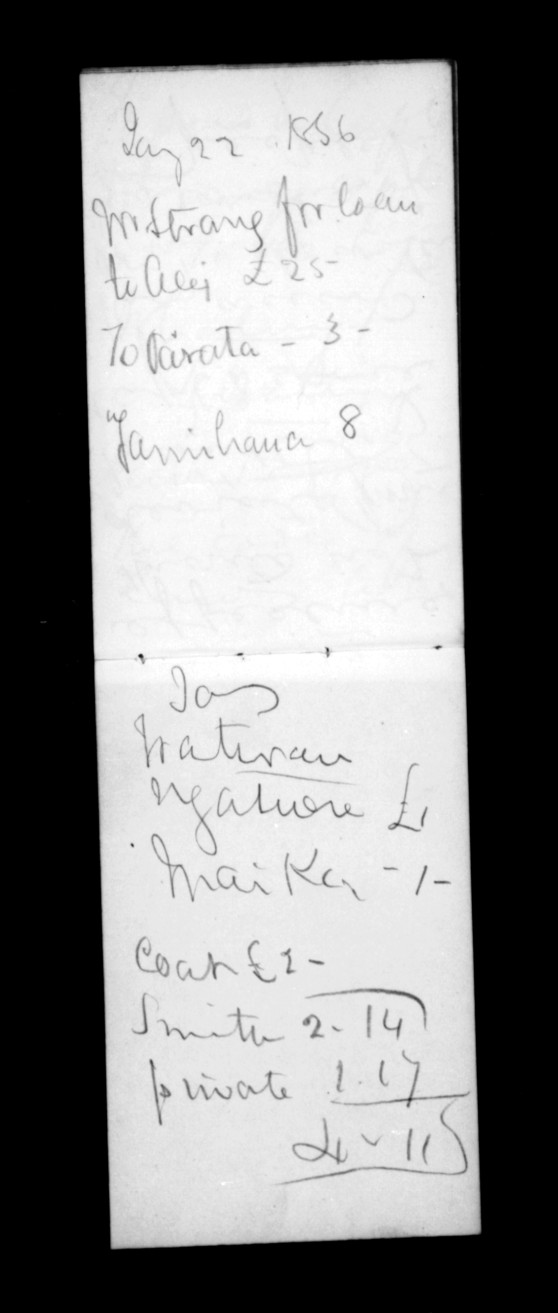 Jany 22 1856
Mr Strang for loan
to £25
To Parata - 3 -
Tamihana 8
Jany
Ngatuere £1
Mai Ka - 1 -
Coat £2 -
Smith 2.14
private 1.17
4 - 11